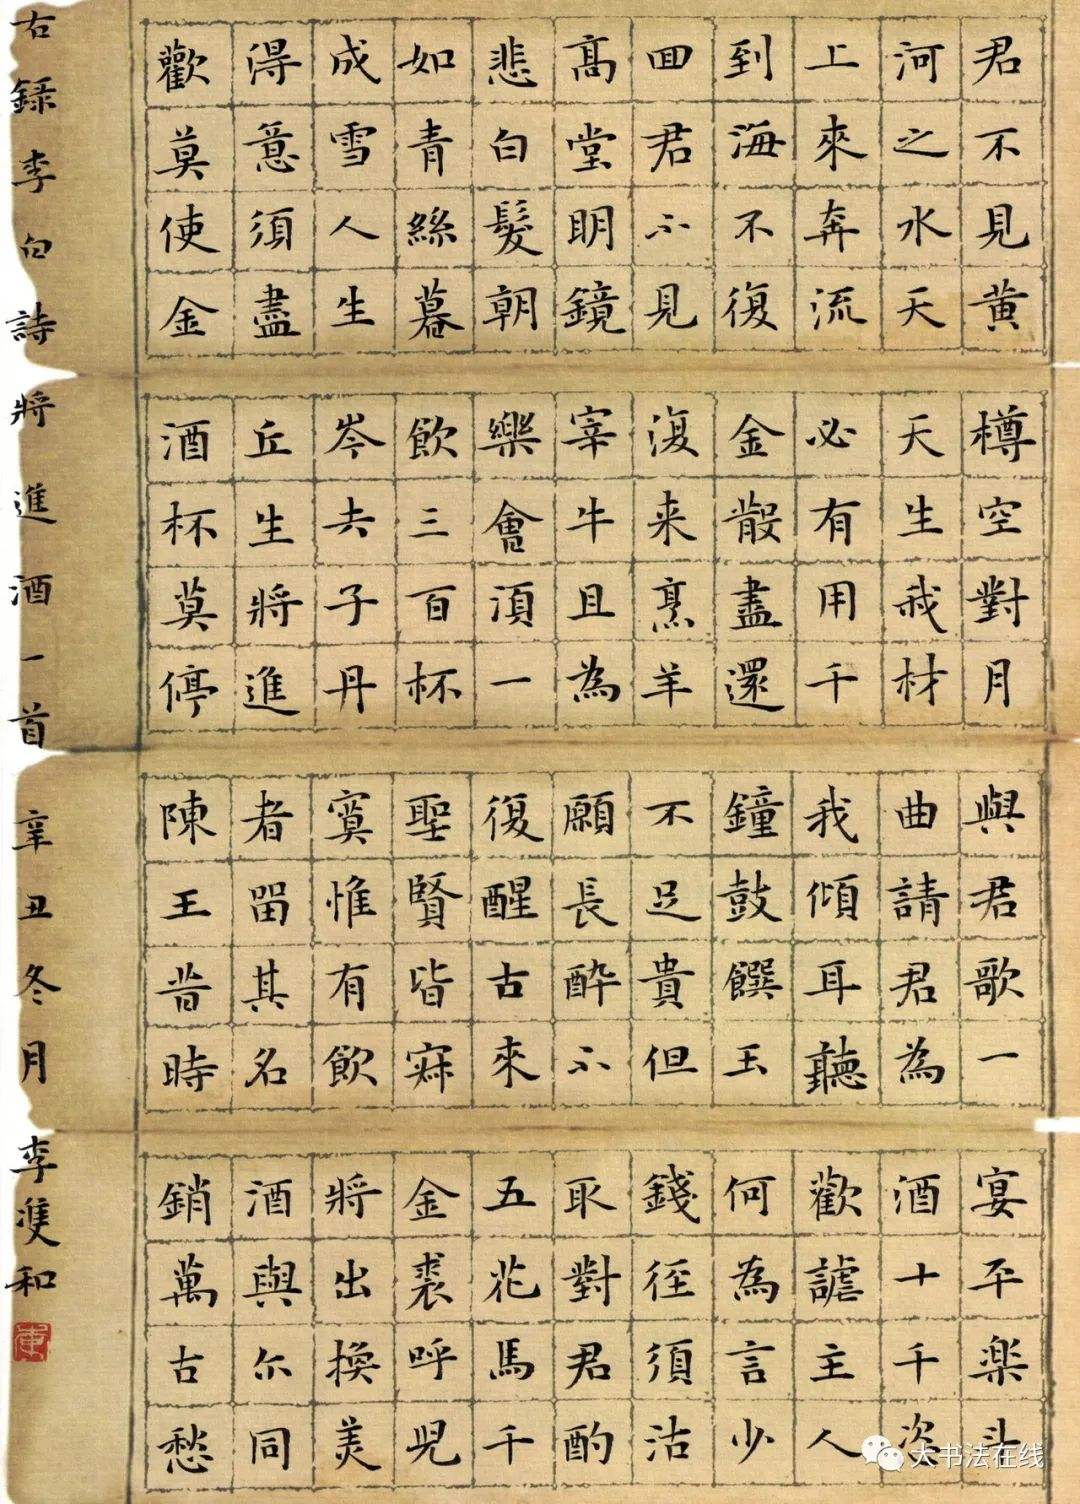 君不見黄
河之水天
上來奔流
到海不復
回君不見
高堂明鏡
悲白髮朝
如青絲暮
成雪人生
得意須盡
歡莫使金
樽空對月
天生我材
必有用千
金散盡還
復来烹羊
宰牛且為
樂會須一
飲三百杯
岑夫子丹
丘生將進
酒杯莫停
與君歌一
曲請君為
我傾耳聽
鐘鼓饌玉
不足貴但
願長醉不
復醒古來
聖賢皆寂
寞惟有飲
者留其名
陳王昔時
宴平楽斗
酒十千恣
歡謔主人
何為言少
錢径須沽
取對君酌
五花馬千
金裘呼兒
將出換美
酒與尔同
銷萬古愁
右録李白詩將進酒一首 辛丑冬月 李雙和
大书法在线